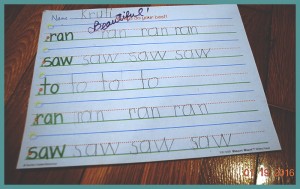 Name Kruti
Beautiful!
ran ran ran ran
saw saw saw saw saw
to to to to
ran ran ran ran
saw saw saw saw
2016